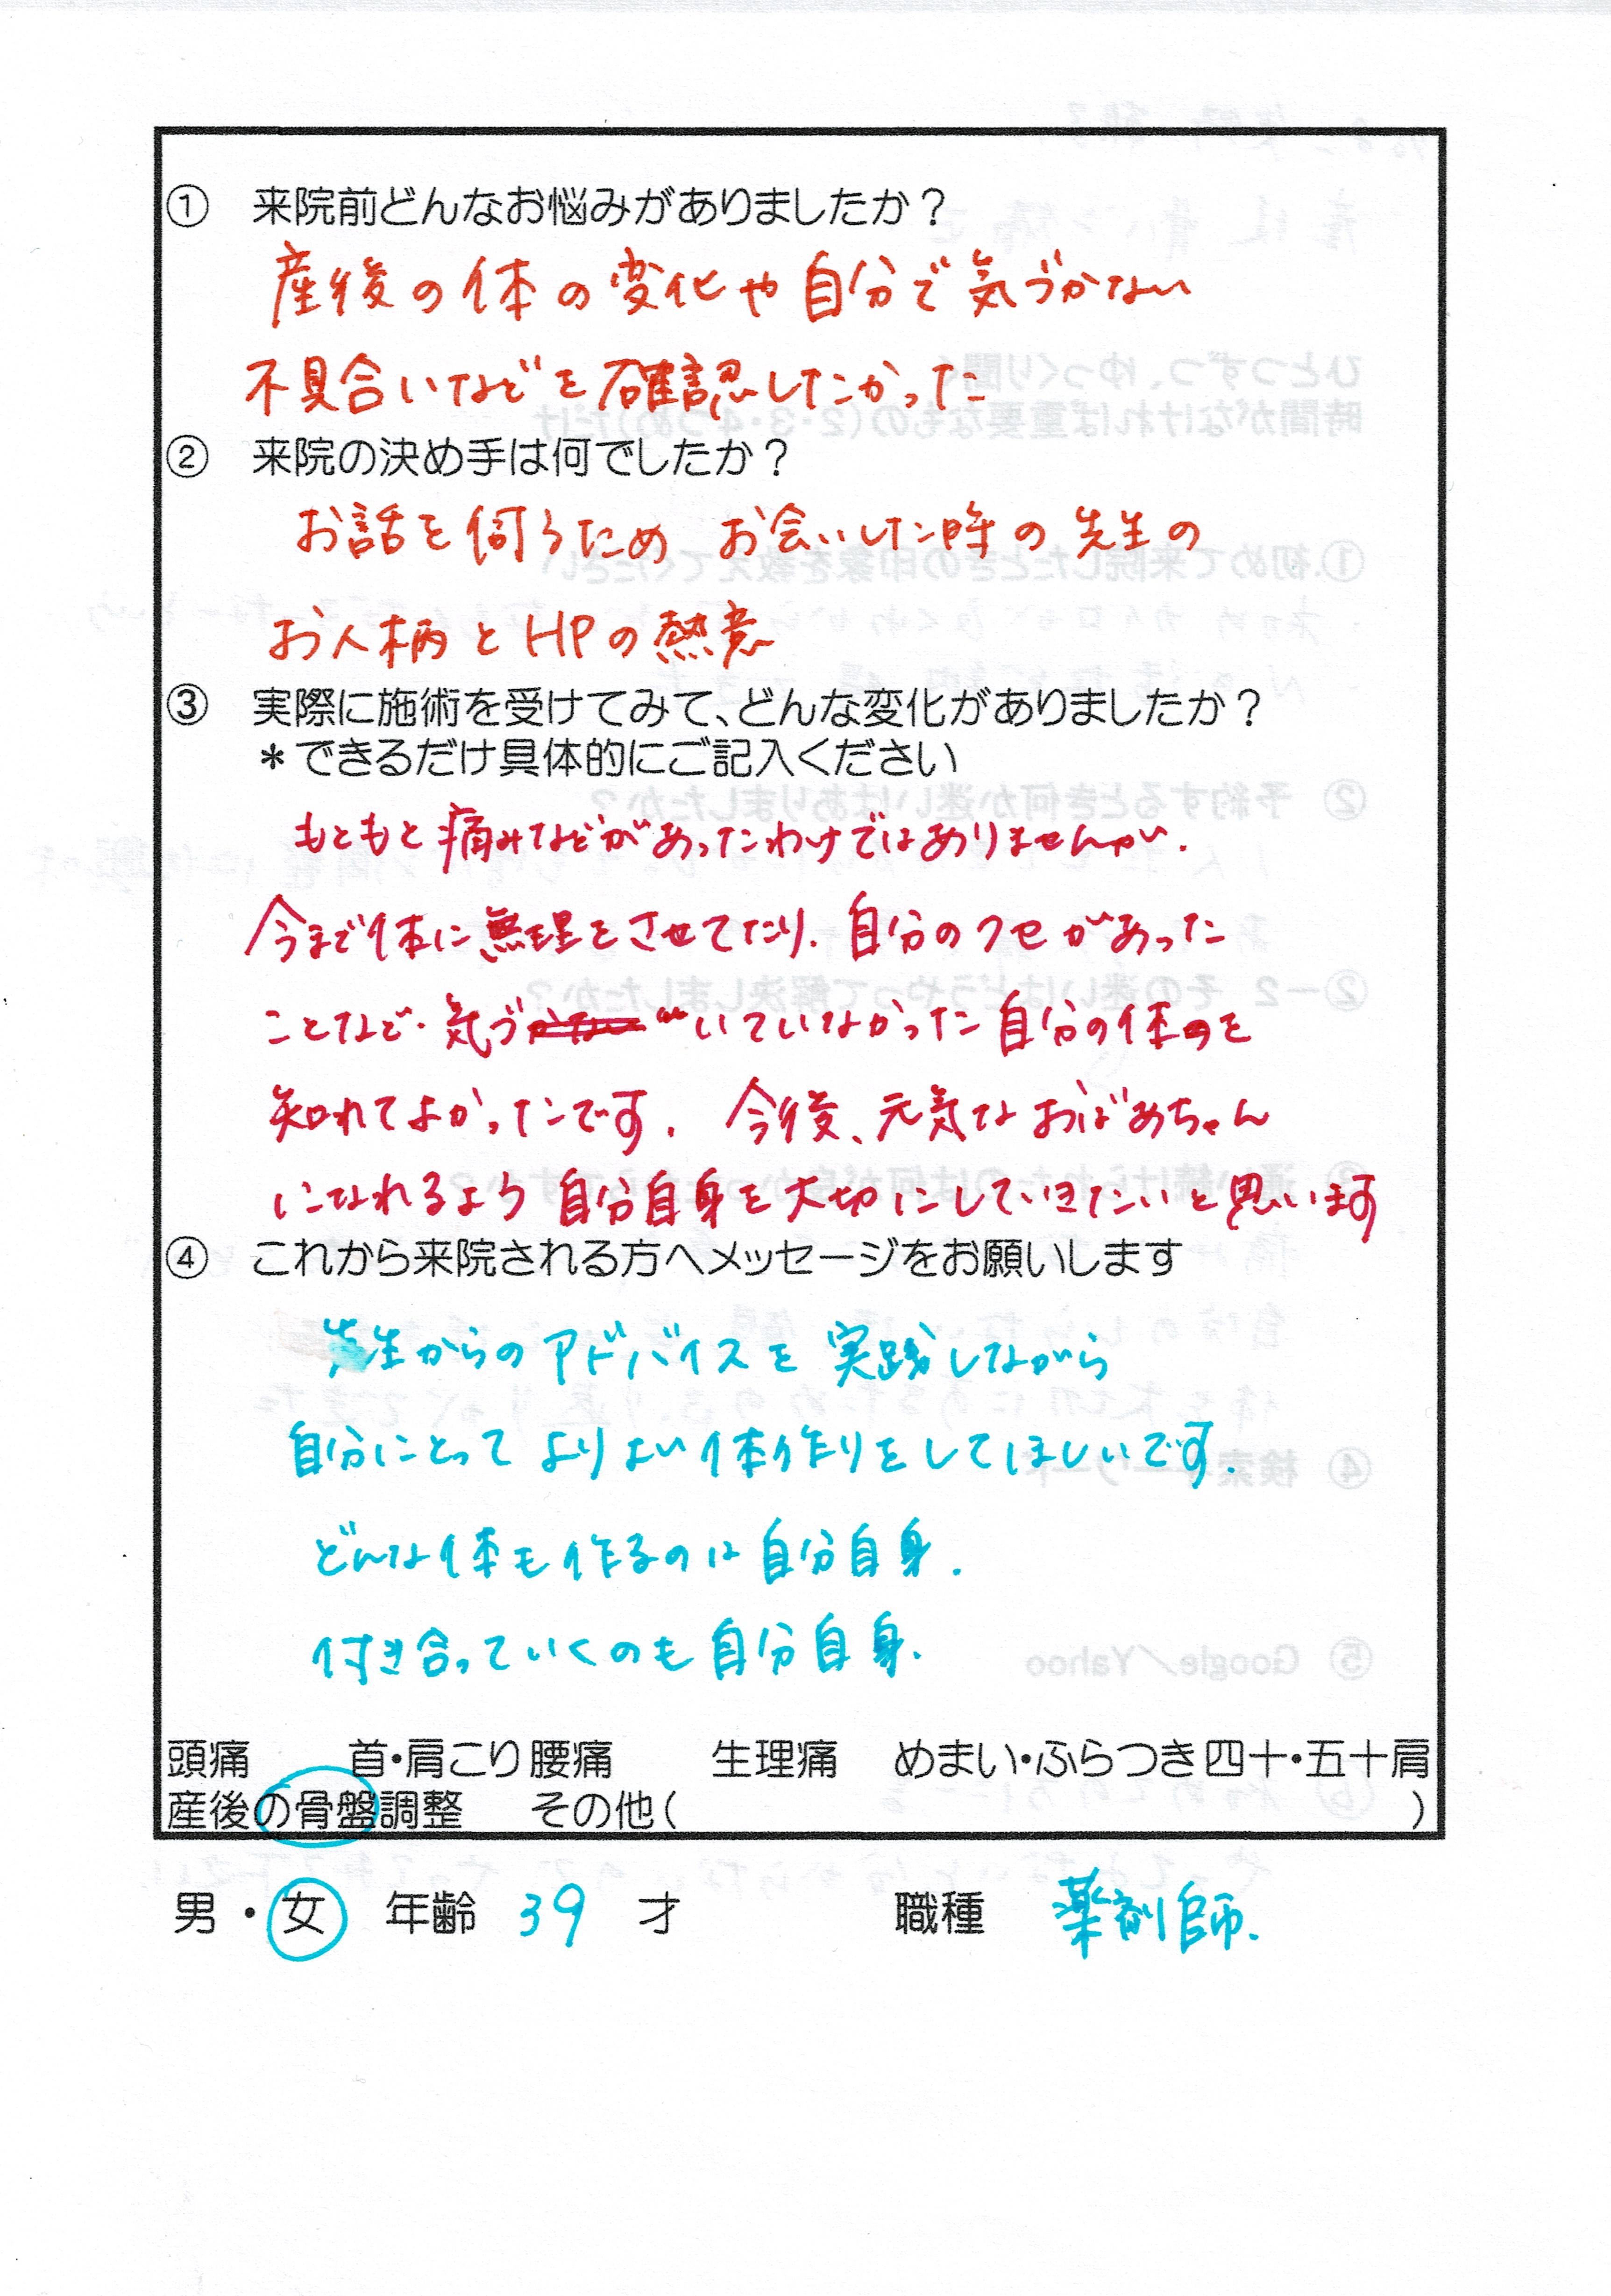 ① 来院前どんなお悩みがありましたか？
産後の体の変化や自分で気づかない
不具合いなどを確認したかった
② 来院の決め手は何でしたか？
お話を伺うため お会いした時の先生の
お人柄とHPの熱意
③ 実際に施術を受けてみて、どんな変化がありましたか？
＊できるだけ具体的にご記入ください
もともと痛みなどがあったわけではありませんが.
今まで体に無理をさせてたり. 自分のクセがあった
ことなど. 気づいていなかった自分の体を
知れてよかったです. 今後、元気なおばあちゃん
になれるよう自分自身を大切にしていきたいと思います
④ これから来院される方へメッセージをお願いします
先生からのアドバイスを実践しながら
自分にとってよりよい体作りをしてほしいです.
どんな体も作るのは自分自身.
付き合っていくのも自分自身.
頭痛 首・肩こり 腰痛 生理痛 めまい・ふらつき 四十・五十肩
産後の骨盤調整 その他( )
男・女 年齢 39 才 職種 薬剤師.